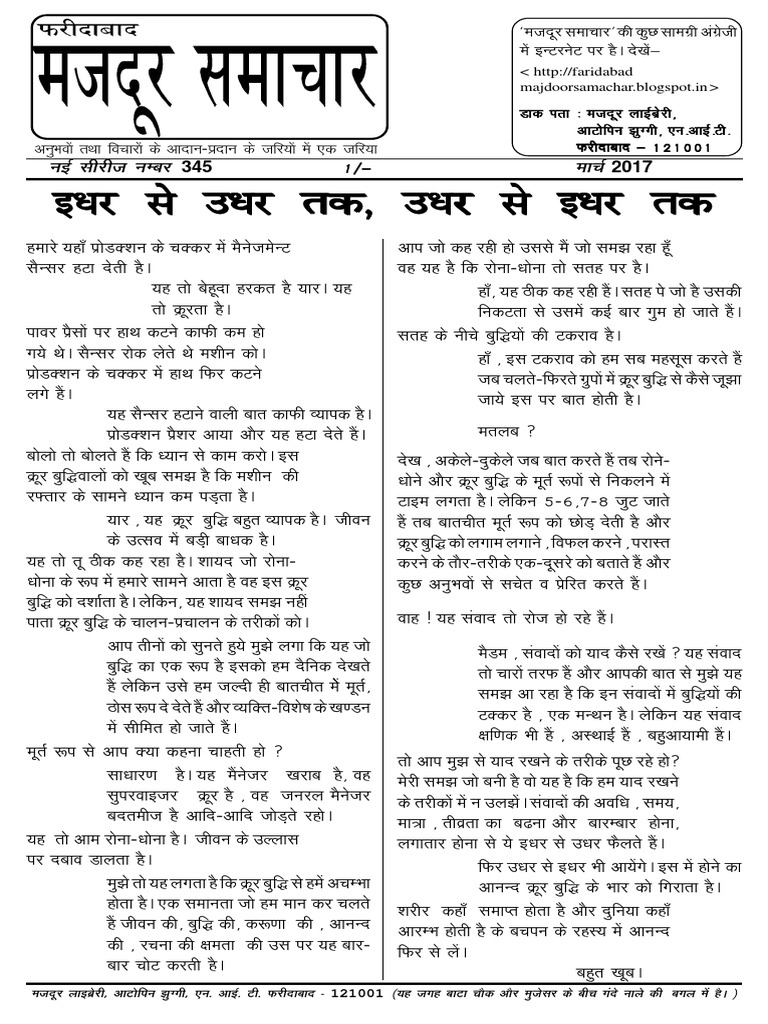 फरीदाबाद
मजदूर समाचार
अनुभवों तथा विचारों के आदान-प्रदान के जरियों में एक जरिया
'मजदूर समाचार' की कुछ सामग्री अंग्रेजी
में इन्टरनेट पर है। देखें–
< http://faridabad
majdoorsamachar.blogspot.in>
डाक पता : मजदूर लाईब्रेरी,
आटोपिन झुग्गी, एन.आई.टी.
फरीदाबाद – 121001
नई सीरीज नम्बर 345 1/– मार्च 2017
इधर से उधर तक, उधर से इधर तक
हमारे यहाँ प्रोडक्शन के चक्कर में मैनेजमेन्ट
सैन्सर हटा देती है।
यह तो बेहूदा हरकत है यार। यह
तो क्रूरता है।
पावर प्रैसों पर हाथ कटने काफी कम हो
गये थे। सैन्सर रोक लेते थे मशीन को।
प्रोडक्शन के चक्कर में हाथ फिर कटने
लगे हैं।
यह सैन्सर हटाने वाली बात काफी व्यापक है।
प्रोडक्शन प्रैशर आया और यह हटा देते हैं।
बोलो तो बोलते हैं कि ध्यान से काम करो। इस
क्रूर बुद्धिवालों को खूब समझ है कि मशीन की
रफ्तार के सामने ध्यान कम पड़ता है।
यार , यह क्रूर बुद्धि बहुत व्यापक है। जीवन
के उत्सव में बड़ी बाधक है।
यह तो तू ठीक कह रहा है। शायद जो रोना-
धोना के रूप में हमारे सामने आता है वह इस क्रूर
बुद्धि को दर्शाता है। लेकिन, यह शायद समझ नहीं
पाता क्रूर बुद्धि के चालन-प्रचालन के तरीकों को।
आप तीनों को सुनते हुये मुझे लगा कि यह जो
बुद्धि का एक रूप है इसको हम दैनिक देखते
हैं लेकिन उसे हम जल्दी ही बातचीत में मूर्त,
ठोस रूप दे देते हैं और व्यक्ति-विशेष के खण्डन
में सीमित हो जाते हैं।
मूर्त रूप से आप क्या कहना चाहती हो ?
साधारण है। यह मैंनेजर खराब है, वह
सुपरवाइजर क्रूर है , वह जनरल मैनेजर
बदतमीज है आदि-आदि जोड़ते रहो।
यह तो आम रोना-धोना है। जीवन के उल्लास
पर दबाव डालता है।
मुझे तो यह लगता है कि क्रूर बुद्धि से हमें अचम्भा
होता है। एक समानता जो हम मान कर चलते
हैं जीवन की, बुद्धि की, करूणा की , आनन्द
की , रचना की क्षमता की उस पर यह बार-
बार चोट करती है।
आप जो कह रही हो उससे मैं जो समझ रहा हूँ
वह यह है कि रोना-धोना तो सतह पर है।
हाँ, यह ठीक कह रही हैं। सतह पे जो है उसकी
निकटता से उसमें कई बार गुम हो जाते हैं।
सतह के नीचे बुद्धियों की टकराव है।
हाँ , इस टकराव को हम सब महसूस करते हैं
जब चलते-फिरते ग्रुपों में क्रूर बुद्धि से कैसे जूझा
जाये इस पर बात होती है।
मतलब ?
देख , अकेले-दुकेले जब बात करते हैं तब रोने-
धोने और क्रूर बुद्धि के मूर्त रूपों से निकलने में
टाइम लगता है। लेकिन 5-6,7-8 जुट जाते
हैं तब बातचीत मूर्त रूप को छोड़ देती है और
क्रूर बुद्धि को लगाम लगाने , विफल करने , परास्त
करने के तौर-तरीके एक-दूसरे को बताते हैं और
कुछ अनुभवों से सचेत व प्रेरित करते हैं।
वाह ! यह संवाद तो रोज हो रहे हैं।
मैडम , संवादों को याद कैसे रखें ? यह संवाद
तो चारों तरफ हैं और आपकी बात से मुझे यह
समझ आ रहा है कि इन संवादों में बुद्धियों की
टक्कर है , एक मन्थन है। लेकिन यह संवाद
क्षणिक भी हैं , अस्थाई हैं , बहुआयामी हैं।
तो आप मुझ से याद रखने के तरीके पूछ रहे हो?
मेरी समझ जो बनी है वो यह है कि हम याद रखने
के तरीकों में न उलझें। संवादों की अवधि , समय,
मात्रा , तीव्रता का बढना और बारम्बार होना,
लगातार होना से ये इधर से उधर फैलते हैं।
फिर उधर से इधर भी आयेंगे। इस में होने का
आनन्द क्रूर बुद्धि के भार को गिराता है।
शरीर कहाँ समाप्त होता है और दुनिया कहाँ
आरम्भ होती है के बचपन के रहस्य में आनन्द
फिर से लें।
बहुत खूब।
मजदूर लाइब्रेरी, आटोपिन झुग्गी, एन. आई. टी. फरीदाबाद - 121001 (यह जगह बाटा चौक और मुजेसर के बीच गंदे नाले की बगल में है। )